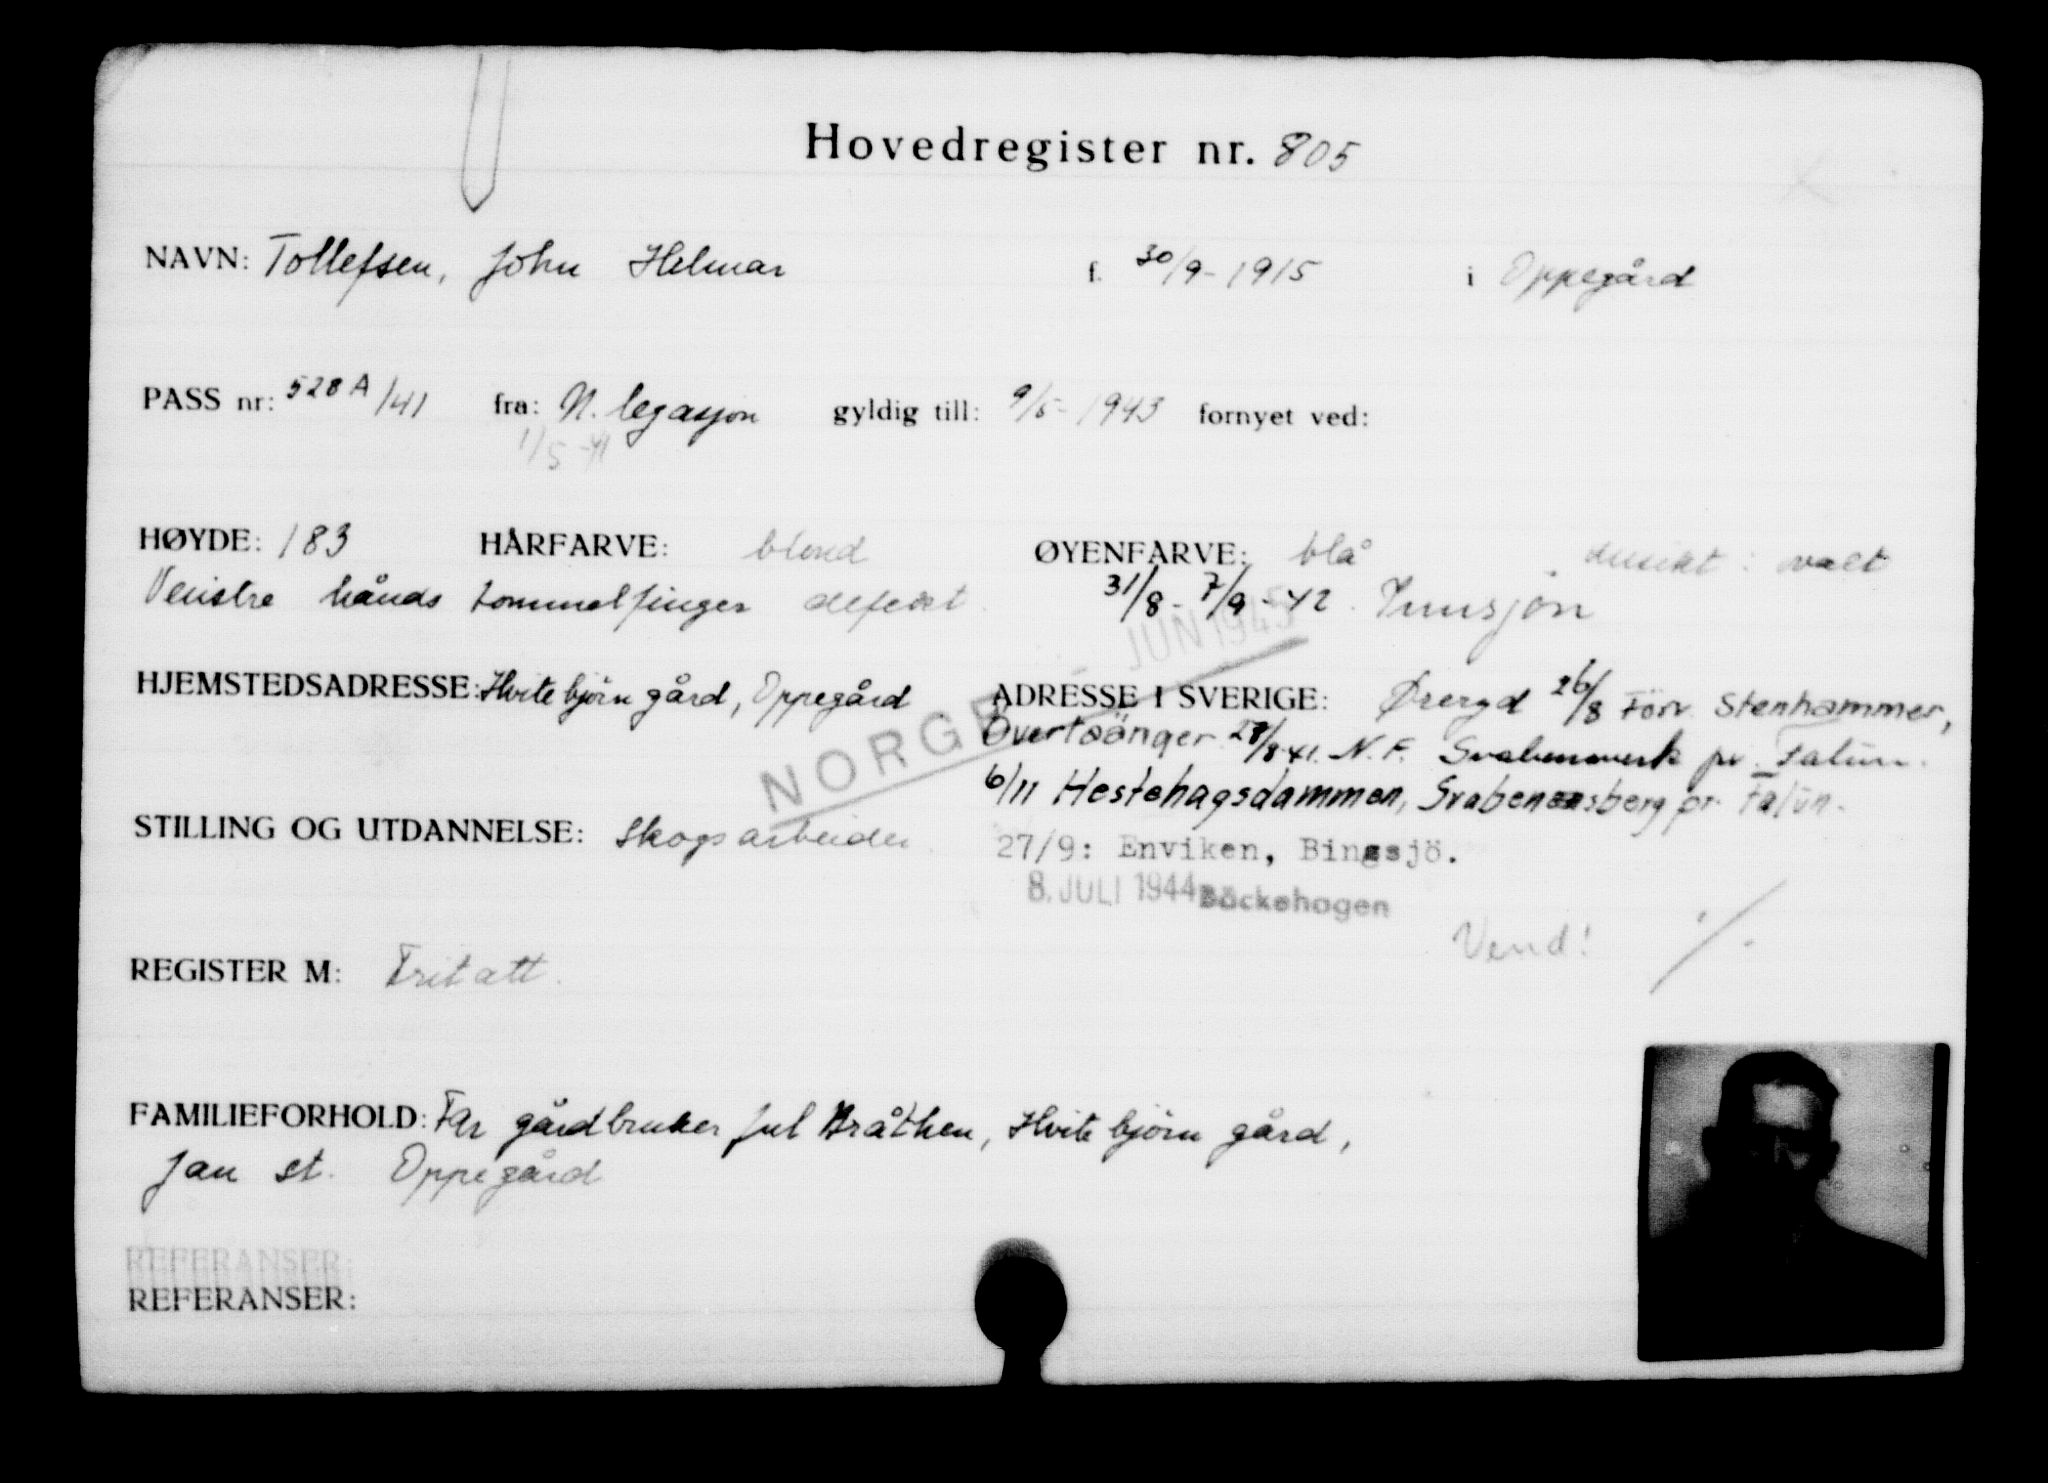 Hovedregister nr. 805
NAVN: Tollefsen, John Helmar f. 30/9-1915 i Oppegård
PASS nr: 528A/41 fra: N. legasjon gyldig till: 9/5-1943 fornyet ved:
1/5-41
HØYDE: 183 HÅRFARVE: blond ØYENFARVE: blå ansikt: ovalt
Venstre hånds tommelfinger defekt. 31/8-7/9-42.
JUN 1945
HJEMSTEDSADRESSE: Hvitebjørn gård, Oppegård ADRESSE I SVERIGE: Öreryd 26/8 Förv. Stenhammer,
Övertäänger 28/8-41. N.F. Svabensverk pr. Falun.
NORGE
6/11 Hestehagsdammen, Svabensberg pr. Falun.
STILLING OG UTDANNELSE: Skogsarbeider. 27/9: Enviken, Bingsjö.
8. JULI 1944 Bäckehagen
Vend! ./.
REGISTER M: Fritatt.
FAMILIEFORHOLD: Far gårdbruker Jul Bråthen, Hvitebjørn gård,
Jan st. Oppegård
REFERANSER:
REFERANSER: